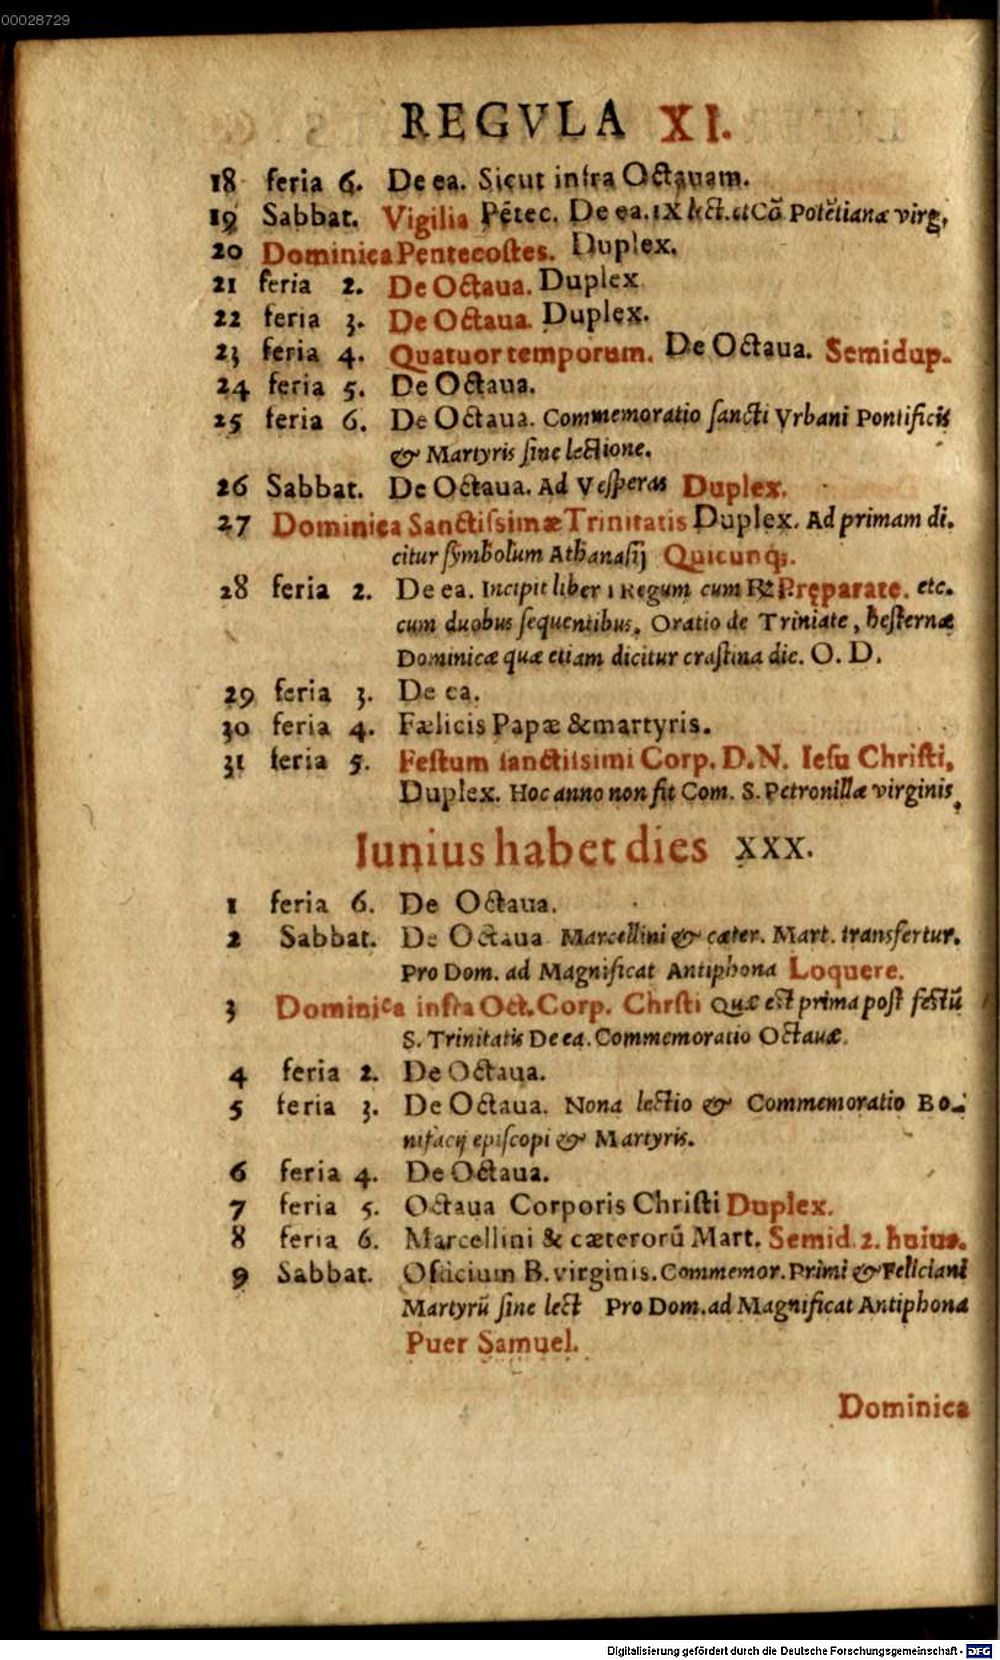 00028729
REGVLA XI.
18 feria 6. De ea. Sicut infra Octauam.
19 Sabbat. Vigilia Pētec. De ea. IX lect. et Cō Potētianæ virg.
20 Dominica Pentecostes. Duplex.
21 feria 2. De Octaua. Duplex
22 feria 3. De Octaua. Duplex.
23 feria 4. Quatuor temporum. De Octaua. Semidup.
24 feria 5. De Octaua.
25 feria 6. De Octaua. Commemoratio sancti Vrbani Pontificis
& Martyris sine lectione.
26 Sabbat. De Octaua. Ad Vesperas Duplex.
27 Dominica Sanctissimæ Trinitatis Duplex. Ad primam di.
citur symbolum Athanasij Quicunq;.
28 feria 2. De ea. Incipit liber 1 Regum cum ℞ Pręparate. etc.
cum duobus sequentibus. Oratio de Triniate, hesternæ
Dominicæ quæ etiam dicitur crastina die. O. D.
29 feria 3. De ea.
30 feria 4. Fælicis Papæ & martyris.
31 feria 5. Festum sanctissimi Corp. D. N. Iesu Christi,
Duplex. Hoc anno non fit Com. S. Petronillæ virginis.
Iunius habet dies XXX.
1 feria 6. De Octaua.
2 Sabbat. De Octaua Marcellini & cæter. Mart. transfertur.
Pro Dom. ad Magnificat Antiphona Loquere.
3 Dominica infra Oct. Corp. Chrsti Quæ est prima post festū
S. Trinitatis De ea. Commemoratio Octauæ.
4 feria 2. De Octaua.
5 feria 3. De Octaua. Nona lectio & Commemoratio Bo-
nifacij episcopi & Martyris.
6 feria 4. De Octaua.
7 feria 5. Octaua Corporis Christi Duplex.
8 feria 6. Marcellini & cæterorū Mart. Semid. 2. huius.
9 Sabbat. Officium B. virginis. Commemor. Primi & Feliciani
Martyrū sine lect Pro Dom. ad Magnificat Antiphona
Puer Samuel.
Dominica
Digitalisierung gefördert durch die Deutsche Forschungsgemeinschaft - DFG